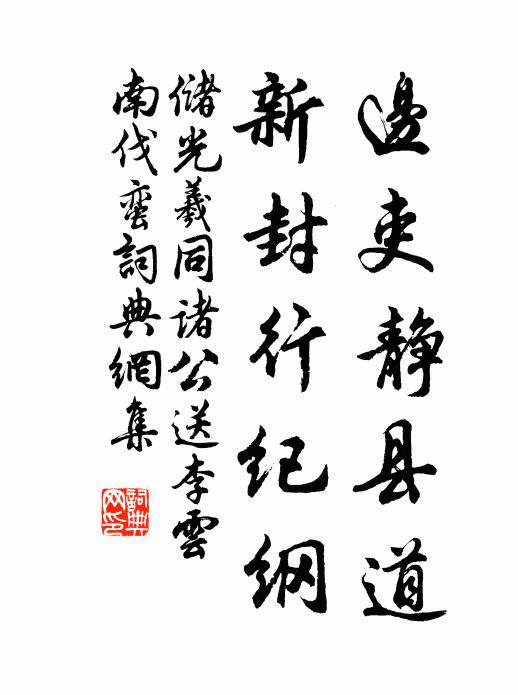 邊吏静县道
新封行纪纲
储光羲同诸公送李雲
南伐蛮詞典網集
詞典
网印